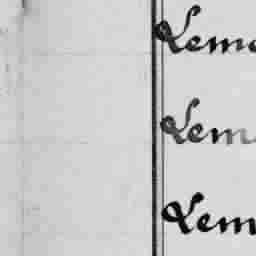 Lem
Lem
Lem